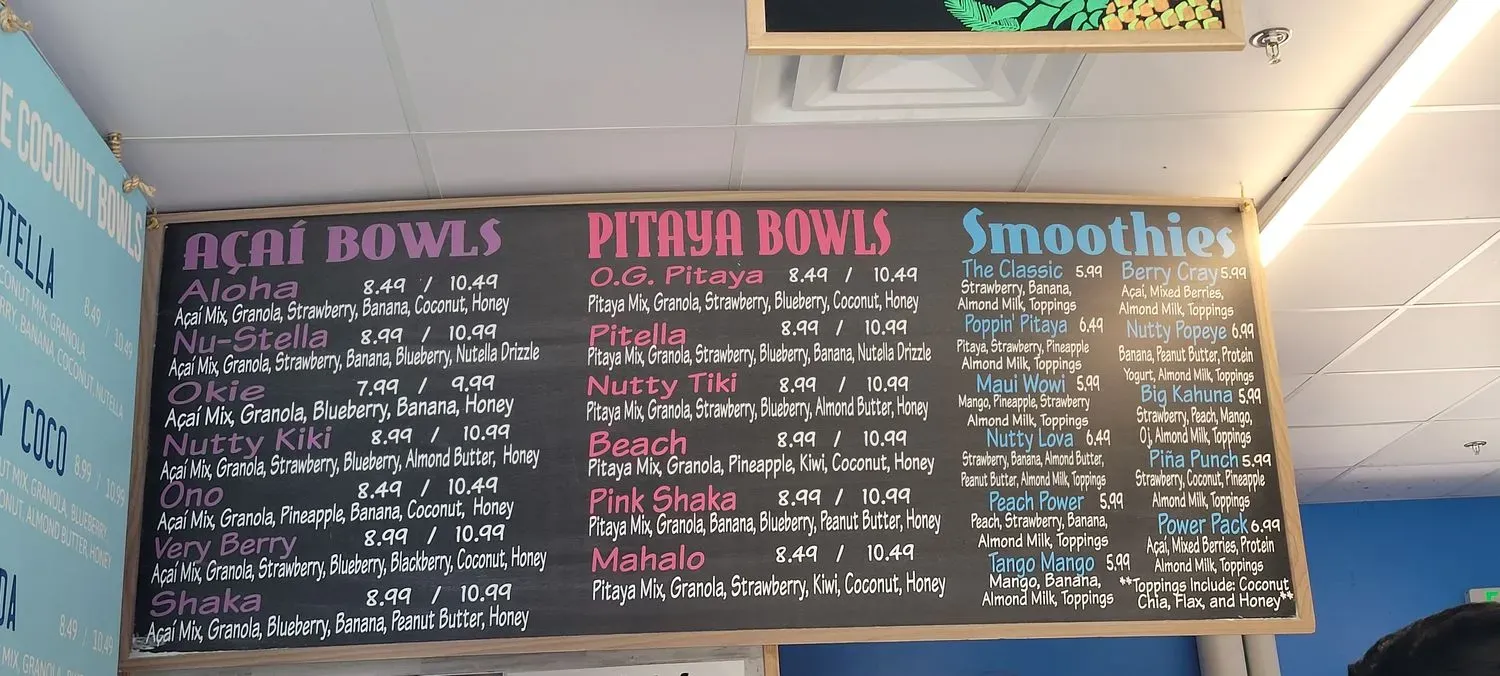 E COCONUT BOWLS
OTELLA
8.49 / 10.49
COCONUT MIX, GRANOLA,
BANANA, COCONUT, NUTELLA
COCO
8.99 / 10.99
MIX, GRANOLA, BLUEBERRY,
ALMOND BUTTER, HONEY
8.49 / 10.49
MIX, GRANOLA,
AÇAÍ BOWLS
Aloha 8.49 / 10.49
Açaí Mix, Granola, Strawberry, Banana, Coconut, Honey
Nu-Stella 8.99 / 10.99
Açaí Mix, Granola, Strawberry, Banana, Blueberry, Nutella Drizzle
Okie 7.99 / 9.99
Açaí Mix, Granola, Blueberry, Banana, Honey
Nutty Kiki 8.99 / 10.99
Açaí Mix, Granola, Strawberry, Blueberry, Almond Butter, Honey
Ono 8.49 / 10.49
Açaí Mix, Granola, Pineapple, Banana, Coconut, Honey
Very Berry 8.99 / 10.99
Açaí Mix, Granola, Strawberry, Blueberry, Blackberry, Coconut, Honey
Shaka 8.99 / 10.99
Açaí Mix, Granola, Blueberry, Banana, Peanut Butter, Honey
PITAYA BOWLS
O.G. Pitaya 8.49 / 10.49
Pitaya Mix, Granola, Strawberry, Blueberry, Coconut, Honey
Pitella 8.99 / 10.99
Pitaya Mix, Granola, Strawberry, Blueberry, Banana, Nutella Drizzle
Nutty Tiki 8.99 / 10.99
Pitaya Mix, Granola, Strawberry, Blueberry, Almond Butter, Honey
Beach 8.99 / 10.99
Pitaya Mix, Granola, Pineapple, Kiwi, Coconut, Honey
Pink Shaka 8.99 / 10.99
Pitaya Mix, Granola, Banana, Blueberry, Peanut Butter, Honey
Mahalo 8.49 / 10.49
Pitaya Mix, Granola, Strawberry, Kiwi, Coconut, Honey
Smoothies
The Classic 5.99
Strawberry, Banana,
Almond Milk, Toppings
Poppin' Pitaya 6.49
Pitaya, Strawberry, Pineapple
Almond Milk, Toppings
Maui Wowi 5.99
Mango, Pineapple, Strawberry
Almond Milk, Toppings
Nutty Lova 6.49
Strawberry, Banana, Almond Butter,
Peanut Butter, Almond Milk, Toppings
Peach Power 5.99
Peach, Strawberry, Banana,
Almond Milk, Toppings
Tango Mango 5.99
Mango, Banana,
Almond Milk, Toppings
Berry Cray 5.99
Açaí, Mixed Berries,
Almond Milk, Toppings
Nutty Popeye 6.99
Banana, Peanut Butter, Protein
Yogurt, Almond Milk, Toppings
Big Kahuna 5.99
Strawberry, Peach, Mango,
Oj, Almond Milk, Toppings
Piña Punch 5.99
Strawberry, Coconut, Pineapple
Almond Milk, Toppings
Power Pack 6.99
Açaí, Mixed Berries, Protein
Almond Milk, Toppings
**Toppings Include: Coconut
Chia, Flax, and Honey**